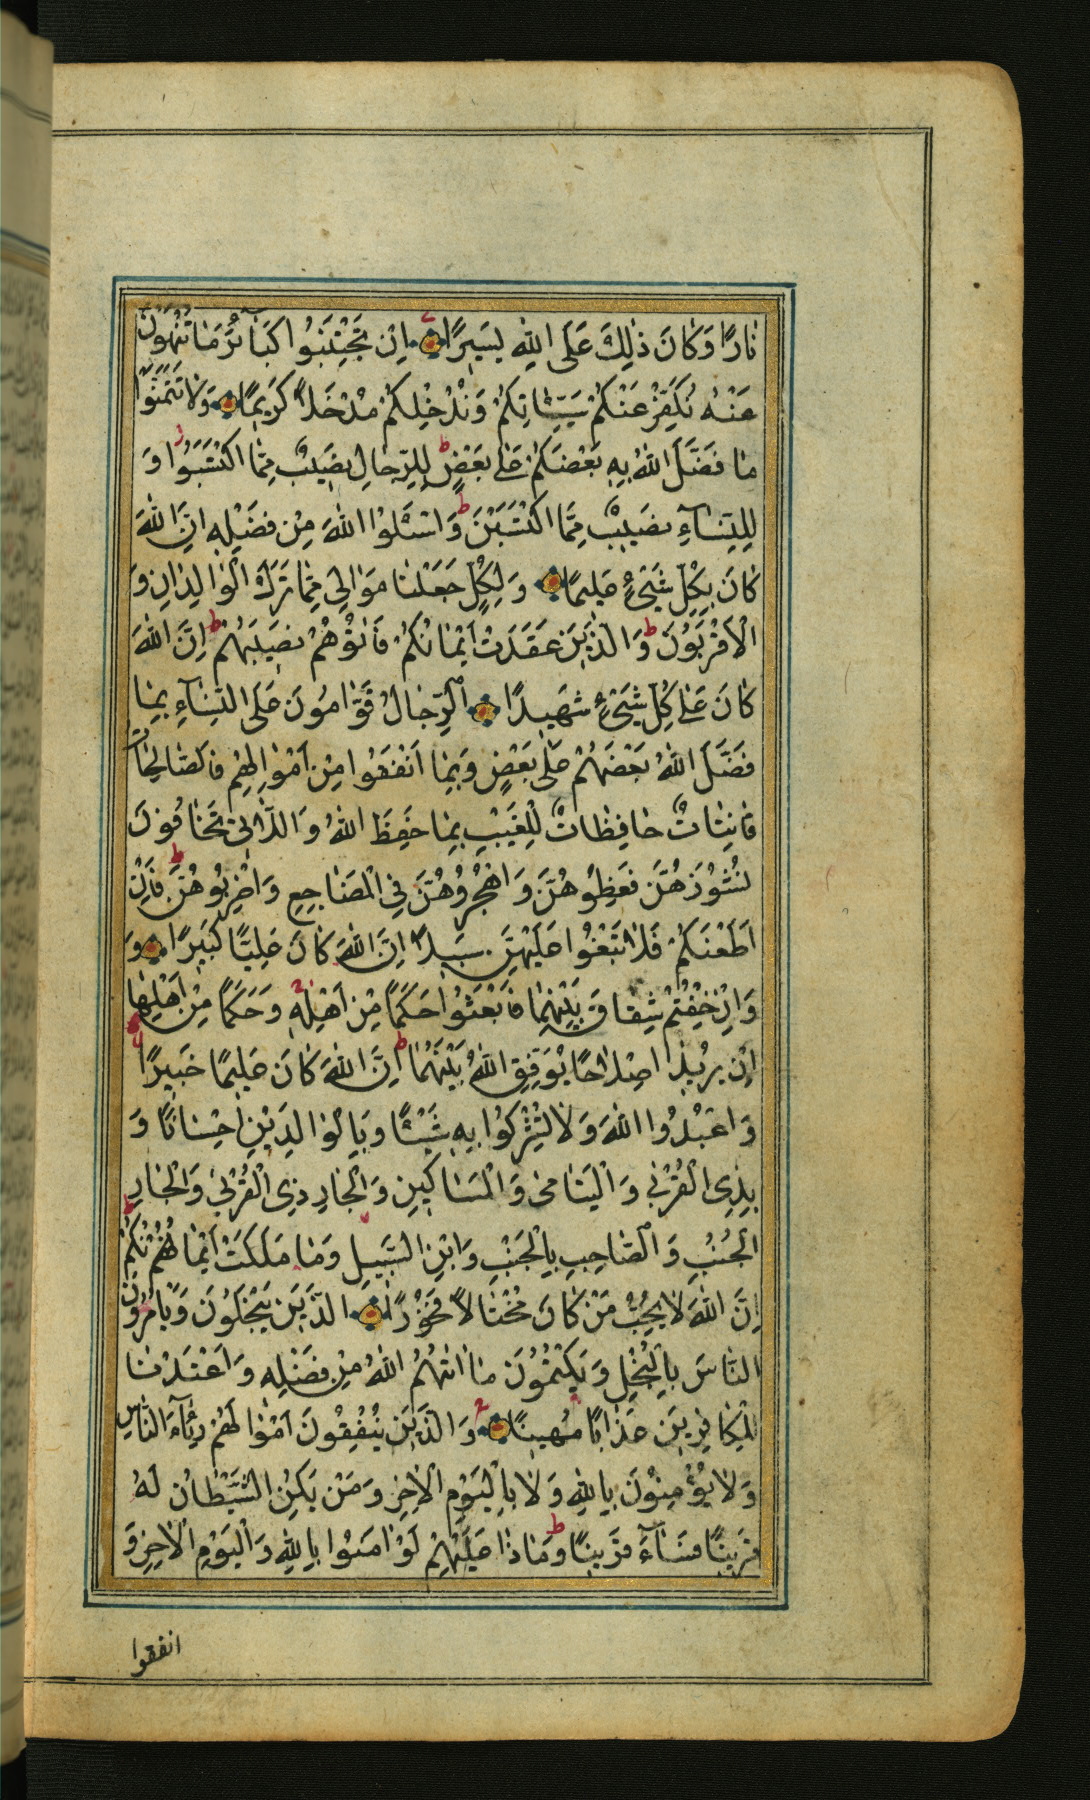 نَارًا وَكَانَ ذٰلِكَ عَلَى اللّٰهِ يَسِيرًا اِنْ تَجْتَنِبُوا كَبَآئِرَ مَا تُنْهَوْنَ
عَنْهُ نُكَفِّرْ عَنْكُمْ سَيِّئَاتِكُمْ وَنُدْخِلْكُمْ مُدْخَلاً كَرِيمًا وَلَا تَتَمَنَّوْا
مَا فَضَّلَ اللّٰهُ بِهِ بَعْضَكُمْ عَلٰى بَعْضٍ ط لِلرِّجَالِ نَصِيبٌ مِمَّا اكْتَسَبُوا وَ
لِلنِّسَآءِ نَصِيبٌ مِمَّا اكْتَسَبْنَ ط وَاسْئَلُوا اللّٰهَ مِنْ فَضْلِهِ اِنَّ اللّٰهَ
كَانَ بِكُلِّ شَيْءٍ عَلِيمًا وَلِكُلٍّ جَعَلْنَا مَوَالِيَ مِمَّا تَرَكَ الْوَالِدَانِ وَ
الْاَقْرَبُونَ ط وَالَّذِينَ عَقَدَتْ اَيْمَانُكُمْ فَاٰتُوهُمْ نَصِيبَهُمْ ط اِنَّ اللّٰهَ
كَانَ عَلٰى كُلِّ شَيْءٍ شَهِيدًا اَلرِّجَالُ قَوَّامُونَ عَلَى النِّسَآءِ بِمَا
فَضَّلَ اللّٰهُ بَعْضَهُمْ عَلٰى بَعْضٍ وَبِمَا اَنْفَقُوا مِنْ اَمْوَالِهِمْ فَالصَّالِحَاتُ
قَانِتَاتٌ حَافِظَاتٌ لِلْغَيْبِ بِمَا حَفِظَ اللّٰهُ وَاللَّاتِي تَخَافُونَ
نُشُوزَهُنَّ فَعِظُوهُنَّ وَاهْجُرُوهُنَّ فِي الْمَضَاجِعِ وَاضْرِبُوهُنَّ ط فَاِنْ
اَطَعْنَكُمْ فَلَا تَبْغُوا عَلَيْهِنَّ سَبِيلاً اِنَّ اللّٰهَ كَانَ عَلِيًّا كَبِيرًا وَ
وَاِنْ خِفْتُمْ شِقَاقَ بَيْنِهِمَا فَابْعَثُوا حَكَمًا مِنْ اَهْلِهِ وَحَكَمًا مِنْ اَهْلِهَا
اِنْ يُرِيدَا اِصْلَاحًا يُوَفِّقِ اللّٰهُ بَيْنَهُمَا ط اِنَّ اللّٰهَ كَانَ عَلِيمًا خَبِيرًا
وَاعْبُدُوا اللّٰهَ وَلَا تُشْرِكُوا بِهِ شَيْئًا وَبِالْوَالِدَيْنِ اِحْسَانًا وَ
بِذِي الْقُرْبٰى وَالْيَتَامٰى وَالْمَسَاكِينِ وَالْجَارِ ذِي الْقُرْبٰى وَالْجَارِ
الْجُنُبِ وَالصَّاحِبِ بِالْجَنْبِ وَابْنِ السَّبِيلِ وَمَا مَلَكَتْ
اِنَّ اللّٰهَ لَا يُحِبُّ مَنْ كَانَ مُخْتَالاً فَخُورًا الَّذِينَ يَبْخَلُونَ وَيَأْمُرُونَ
النَّاسَ بِالْبُخْلِ وَيَكْتُمُونَ مَا اٰتٰهُمُ اللّٰهُ مِنْ فَضْلِهِ وَاَعْتَدْنَا
لِلْكَافِرِينَ عَذَابًا مُهِينًا وَالَّذِينَ يُنْفِقُونَ اَمْوَالَهُمْ رِئَآءَ النَّاسِ
وَلَا يُؤْمِنُونَ بِاللّٰهِ وَلَا بِالْيَوْمِ الْاٰخِرِ وَمَنْ يَكُنِ الشَّيْطَانُ لَهُ
قَرِينًا فَسَآءَ قَرِينًا ط وَمَاذَا عَلَيْهِمْ لَوْ اٰمَنُوا بِاللّٰهِ وَالْيَوْمِ الْاٰخِرِ وَ
انفقوا